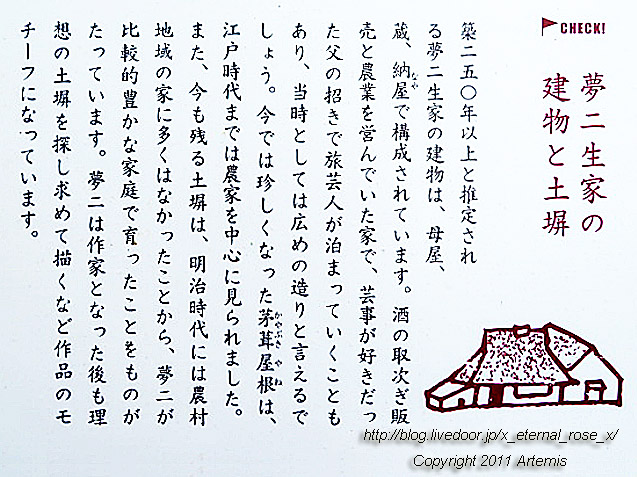 CHECK!
夢二生家の
建物と土塀
築二五〇年以上と推定され
る夢二生家の建物は、母屋、
蔵、納屋で構成されています。酒の取次ぎ販
なや
売と農業を営んでいた家で、芸事が好きだっ
た父の招きで旅芸人が泊まっていくことも
あり、当時としては広めの造りと言えるで
しょう。今では珍しくなった茅葺屋根は、
かやぶきやね
江戸時代までは農家を中心に見られました。
また、今も残る土塀は、明治時代には農村
地域の家に多くはなかったことから、夢二が
比較的豊かな家庭で育ったことをものが
たっています。夢二は作家となった後も理
想の土塀を探し求めて描くなど作品のモ
チーフになっています。
http://blog.livedoor.jp/x_eternal_rose_x/
Copyright 2011 Artemis